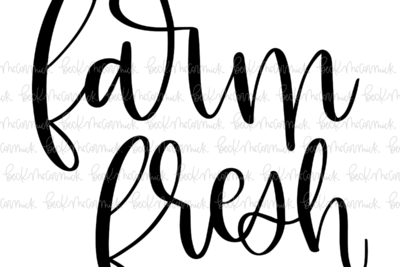 farm
fresh